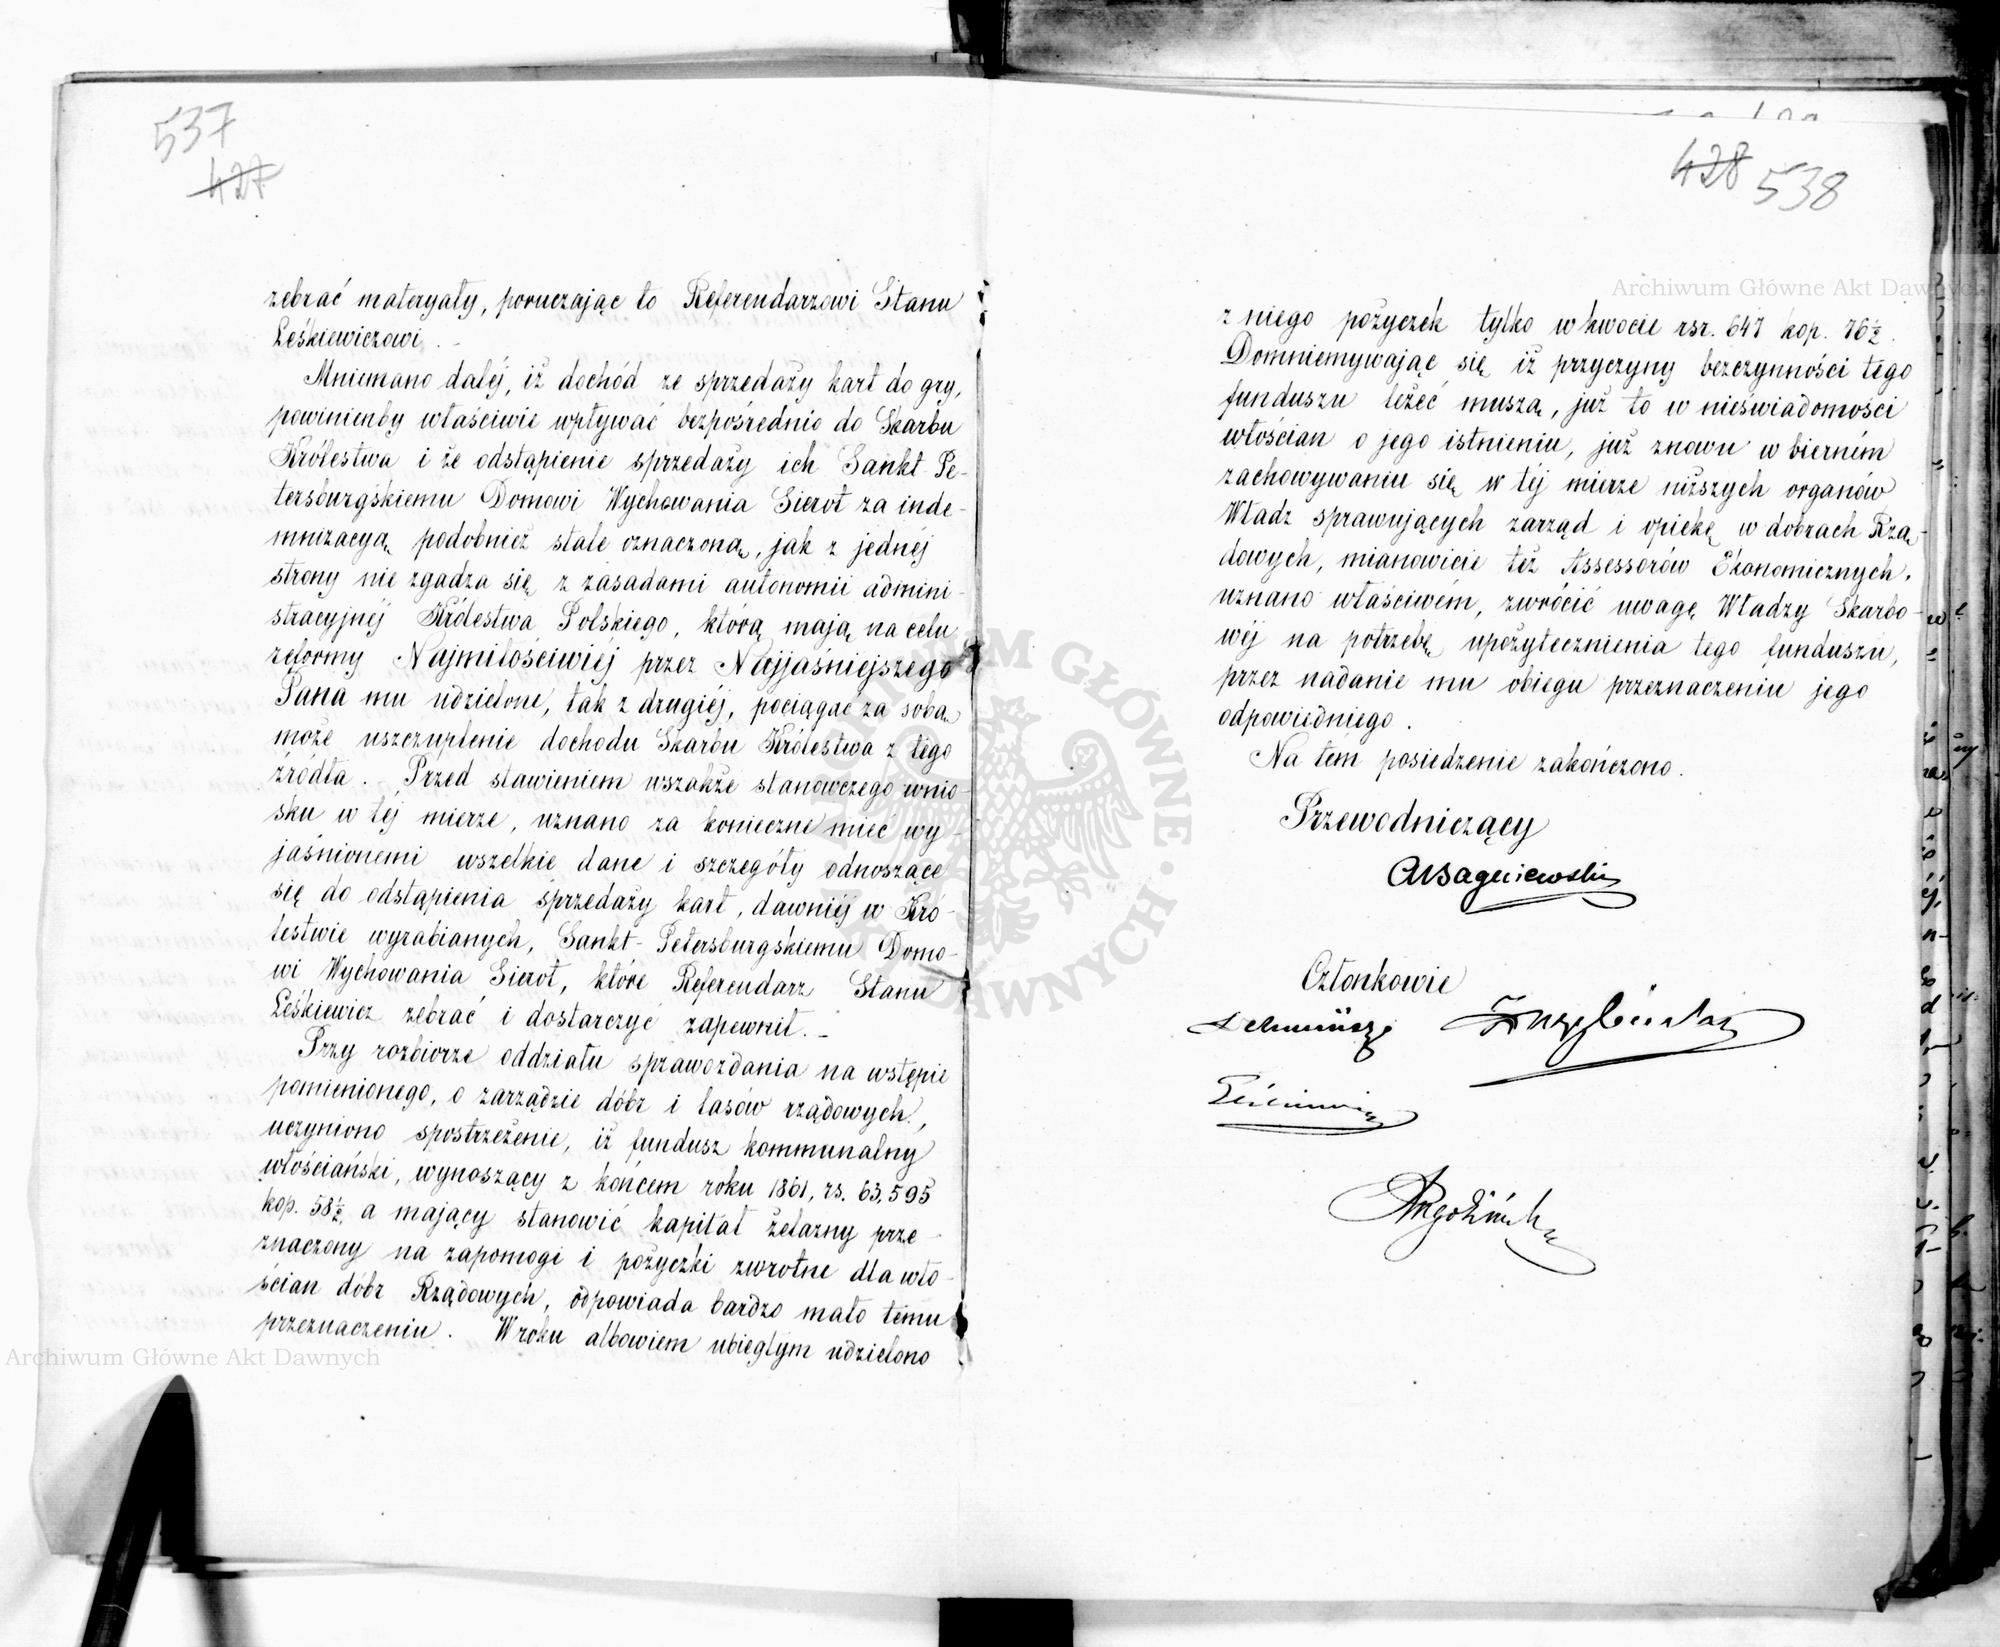 537
427
zebrać materyały, poruczając to Referendarzowi Stanu
Leśkiewiczowi. –
Mniemano daléj, iż dochód ze sprzedaży kart do gry,
powinienby właściwie wpływać bezpośrednio do Skarbu
Królestwa i że odstąpienie sprzedaży ich Sankt Pe-
tersburgskiemu Domowi Wychowania Sierot za inde-
mnizacyą podobnież stale oznaczoną, jak z jednéj
strony nie zgadza się z zasadami autonomii admini-
stracyjnéj Królestwa Polskiego, którą mają na celu
reformy Najmiłościwiej przez Najjaśniejszego
Pana mu udzielone, tak z drugiéj, pociągać za sobą
może uszczuplenie dochodu Skarbu Królestwa z tego
źródła. Przed stawieniem wszakże stanowczego wnio-
sku w téj mierze, uznano za konieczne mieć wy-
jaśnionemi wszelkie dane i szczegóły odnoszące
się do odstąpienia sprzedaży kart, dawniéj w Kró-
lestwie wyrabianych, Sankt-Petersburgskiemu Domo-
wi Wychowania Sierot, które Referendarz Stanu
Leśkiewicz zebrać i dostarczyć zapewnił. –
Przy rozbiorze oddziału sprawozdania na wstępie
pomienionego, o zarządzie dóbr i lasów rządowych,
uczyniono spostrzeżenie, iż fundusz kommunalny
włościański, wynoszący z końcem roku 1861, rs. 63,595
kop. 58½, a mający stanowić kapitał żelazny prze-
znaczony na zapomogi i pożyczki zwrotne dla wło-
ścian dóbr Rządowych, odpowiada bardzo mało temu
przeznaczeniu. W roku albowiem ubiegłym udzielono
Archiwum Główne Akt Dawnych
428 538
Archiwum Główne Akt Dawnych
z niego pożyczek tylko w kwocie rsr. 647 kop. 76½.
Domniemywając się iż przyczyny bezczynności tego
funduszu leżéć muszą, już to w nieświadomości
włościan o jego istnieniu, już znowu w bierném
zachowywaniu się w téj mierze niższych organów
Władz sprawujących zarząd i opiekę w dobrach Rzą-
dowych, mianowicie też Assessorów Ekonomicznych,
uznano właściwém, zwrócić uwagę Władzy Skarbo-
wéj na potrzebę upożytecznienia tego funduszu,
przez nadanie mu obiegu przeznaczeniu jego
odpowiedniego.
Na tem posiedzenie zakończono.
Przewodniczący
Członkowie
ARCHIWUM GŁÓWNE AKT DAWNYCH